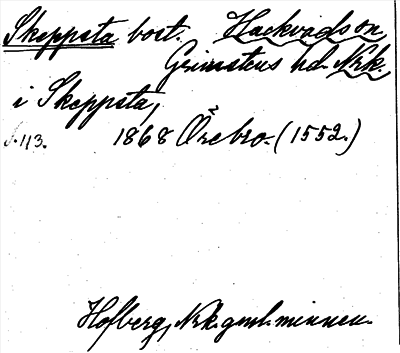 Skeppsta bost. Hackvads sn,
Grimstens hd. Nrk.
i Skeppsta,
s. 113. 1868 Örebro. (1552.)
Hofberg, Nrk. gml. minnen.